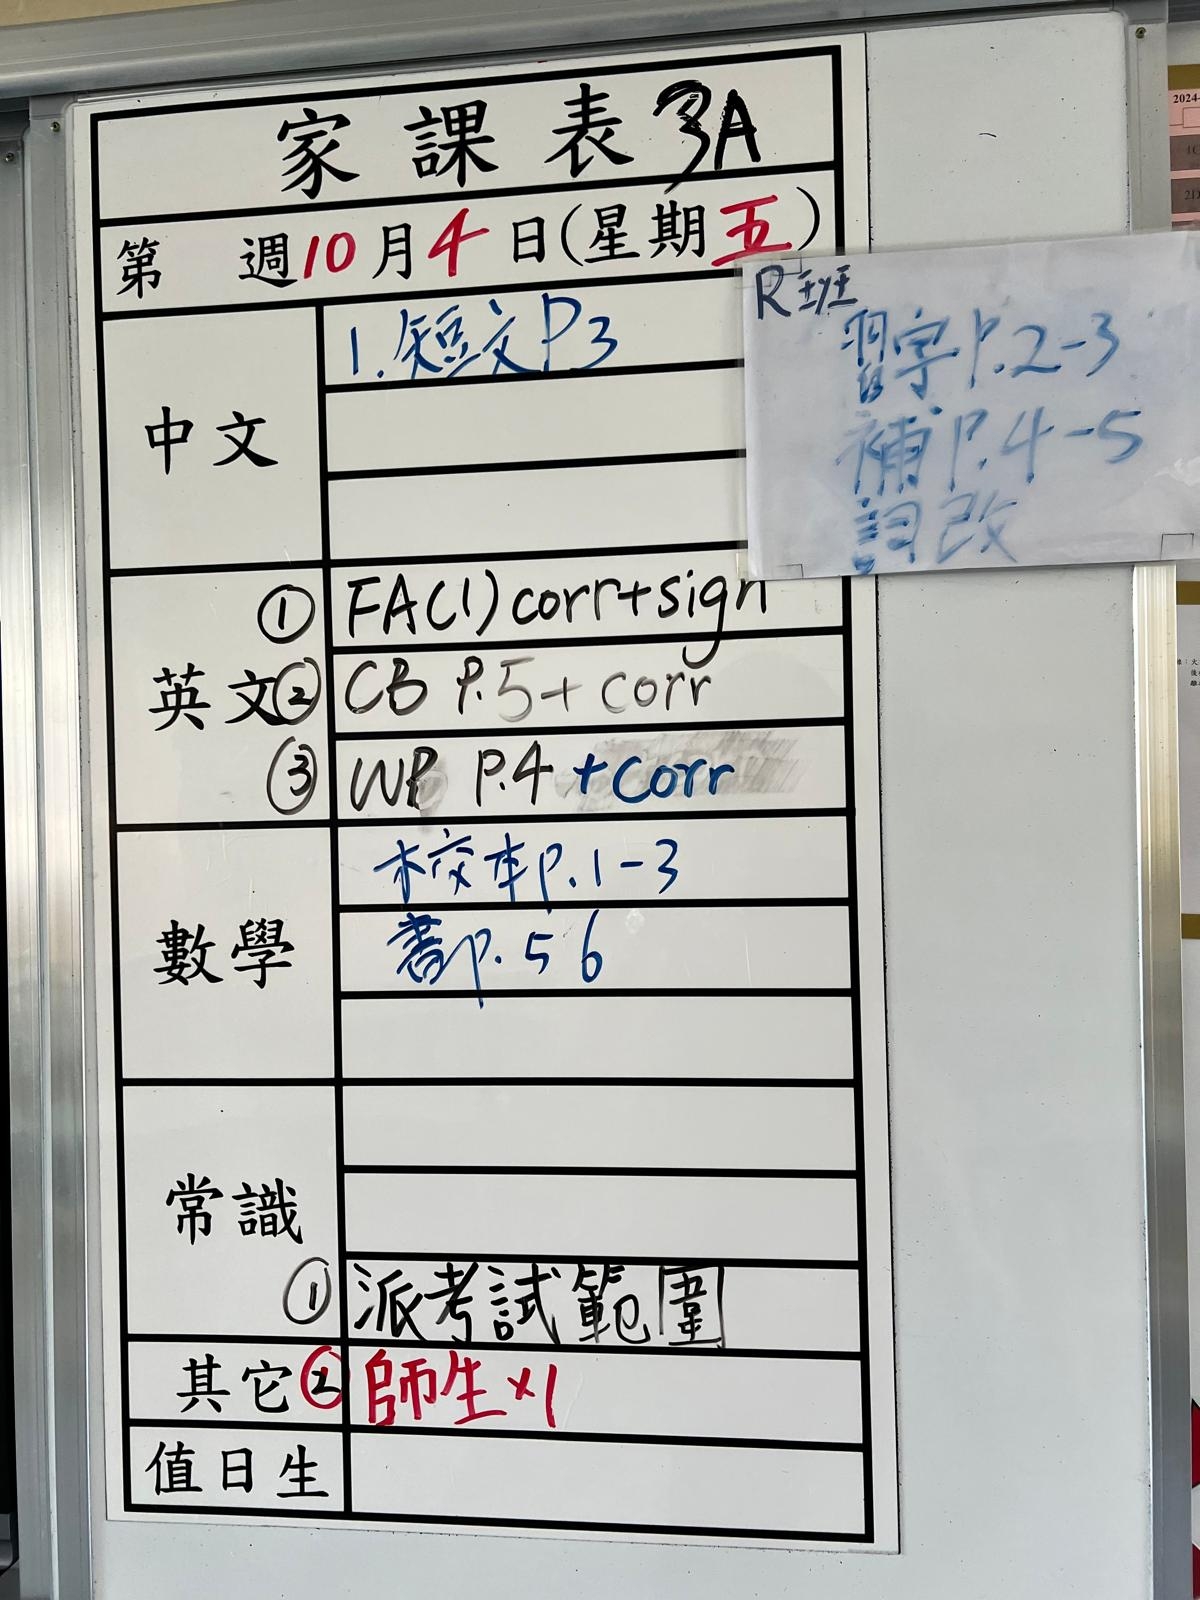 家課表 3A
第 週10月4日(星期五)
中文
1.短文P3
R班
習字P.2-3
補P.4-5
詞改
英文
① FA(1)corr+sign
② CB P.5+corr
③ WP P.4 +corr
數學
校本p.1-3
書p.56
常識
① 派考試範圍
其它② 師生×1
值日生
2024-